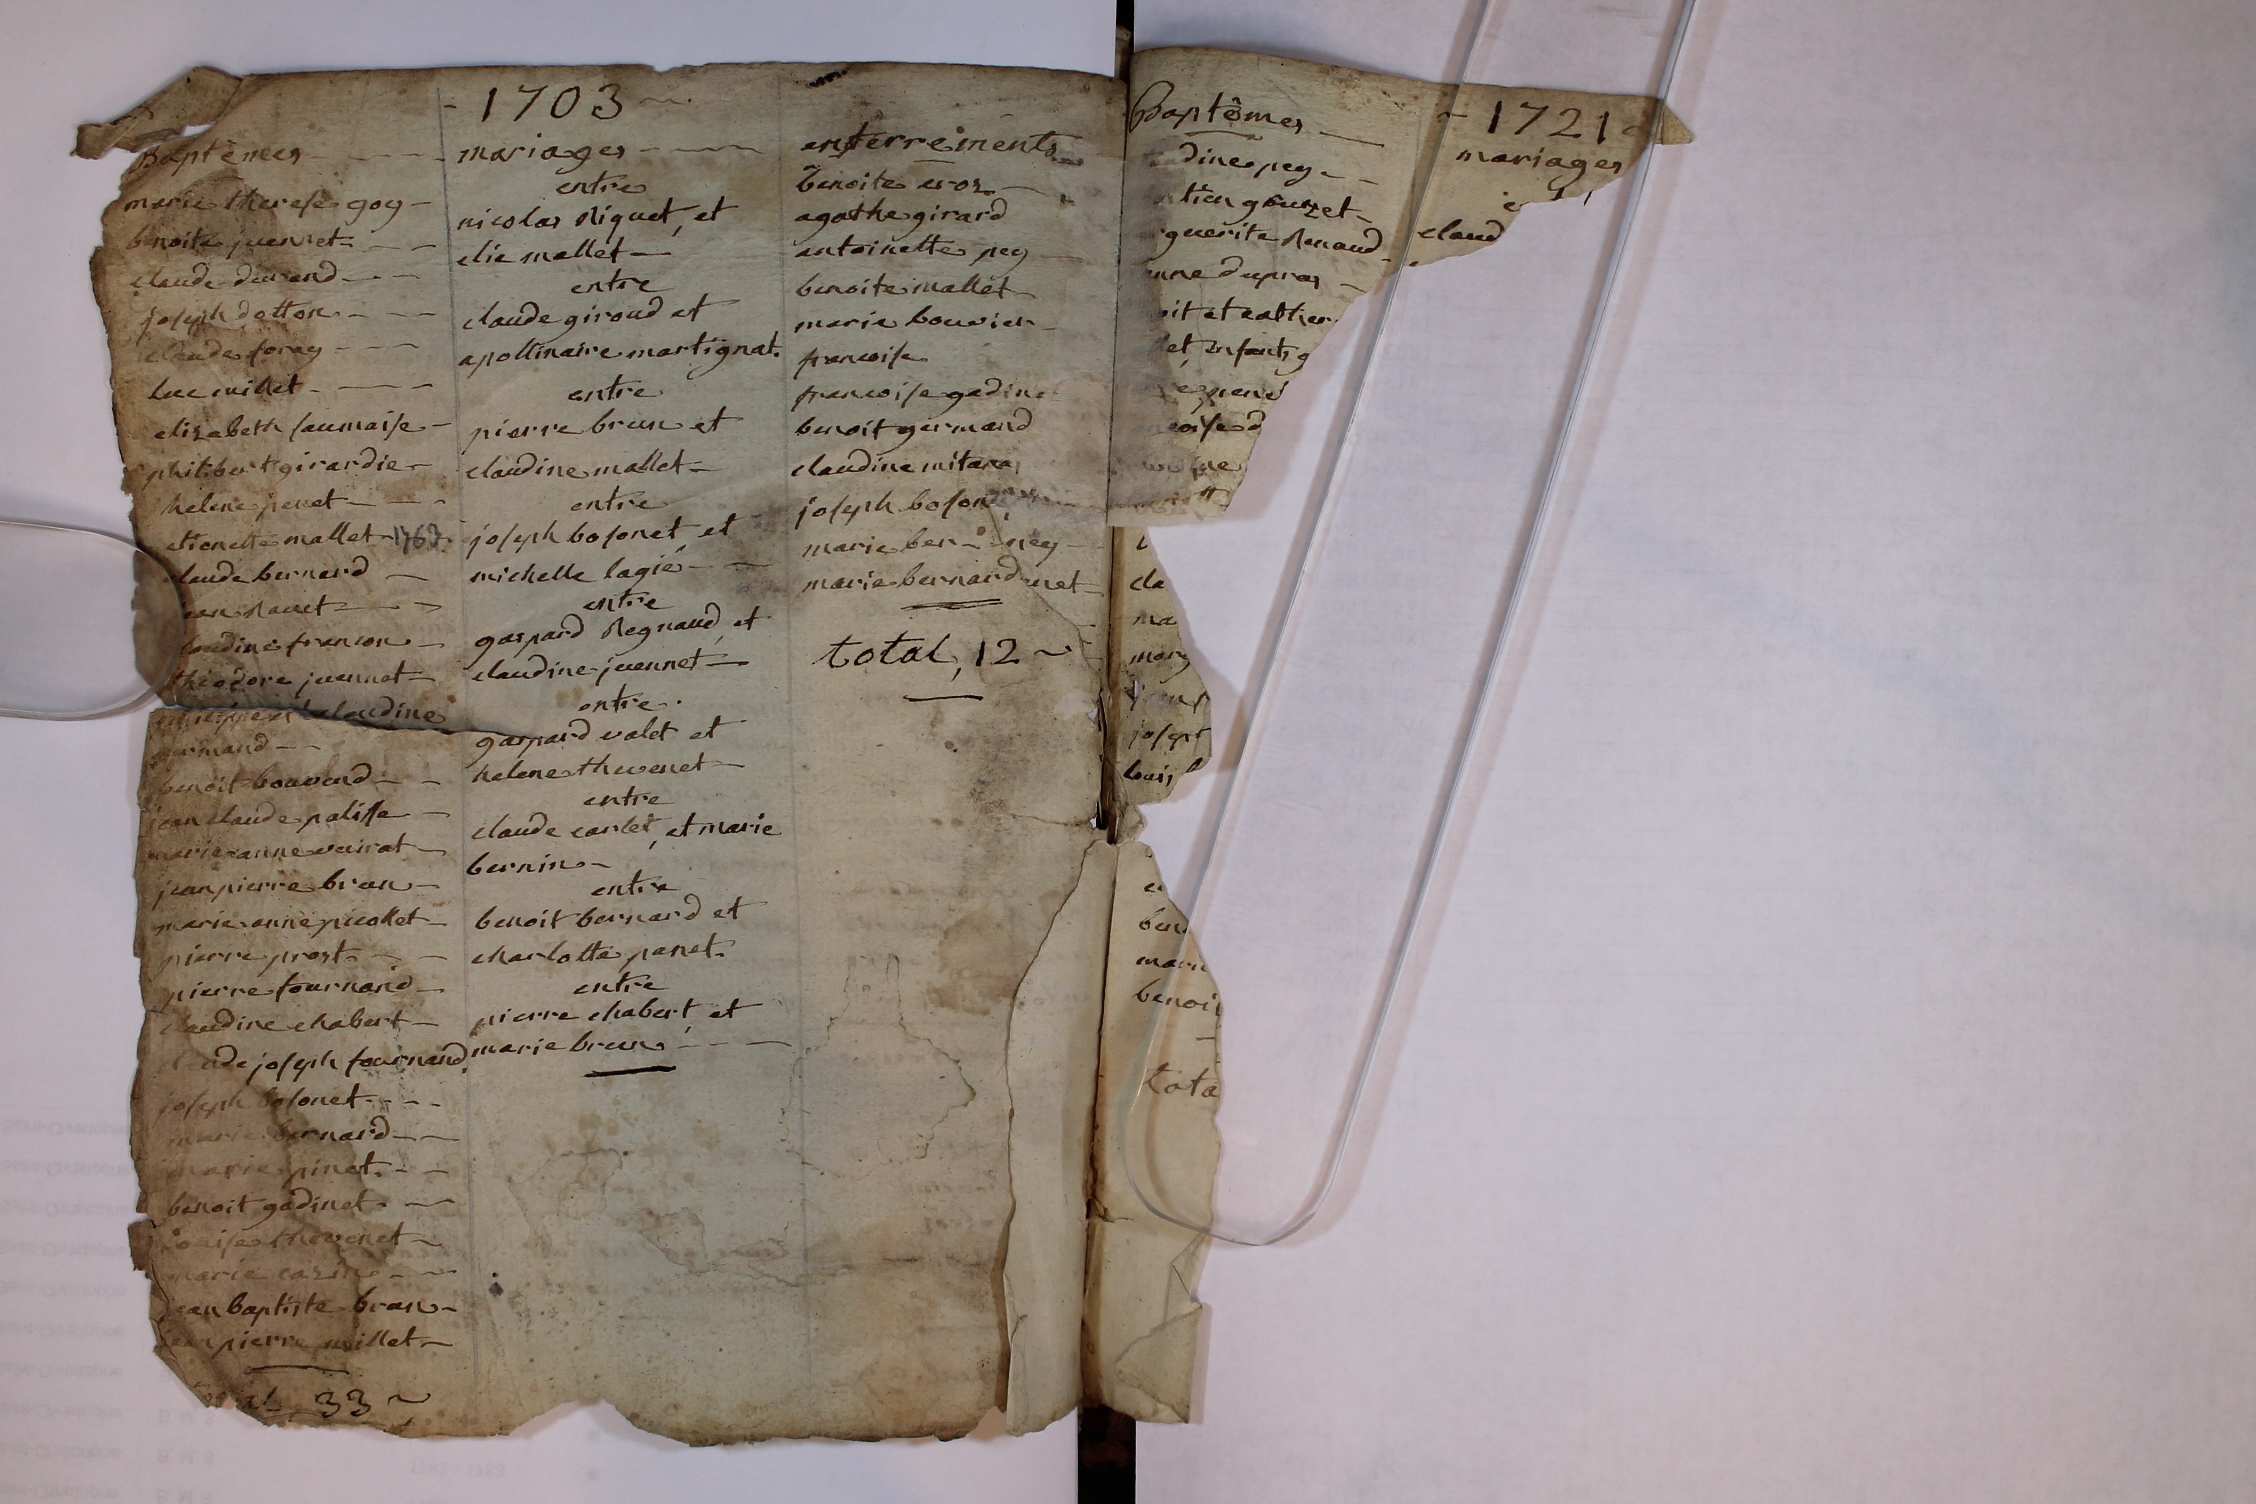 1703
Baptêmes
marie therese goy
benoite juennet
claude durand
joseph dotton
claude foray
luc millet
elizabeth saumaise
philibert girardie
helene penet
etienette mallet 1767
claude bernard
jean
claudine françon
théodore juennet
claudine
germand
benoit bouvard
jean claude palisse
marie anne vuirat
jean pierre brun
marie anne picollet
pierre prost
pierre fournand
claudine chabert
claude joseph fournand
joseph bosonet
marie bernard
marie pinet
benoit gadinet
louise thevenet
marie
jean baptiste brun
jean pierre millet
total 33
mariages
entre
nicolas niquet, et
clie mallet
entre
claude giroud et
apollinaire martignat.
entre
pierre brun et
claudine mallet
entre
joseph bosonet, et
michelle lagié
entre
gaspard Regnaud, et
claudine juennet
entre
gaspard valet et
helene thevenet
entre
claude carlet, et marie
bernin
entre
benoit bernard et
charlotte penet
entre
pierre chabert, et
marie brun
enterrements
benoite
agathe girard
antoinette pey
benoite mallet
marie bouvier
francoise
francoise gadine
benoit germand
claudine mitana
joseph boson
marie ber
marie bernard
total, 12
Baptêmes
dine pey
tien gouzet
guerite Renaud
anne dupras
oit et cather
let, enfants g
pene
coise d
cla
ma
marg
joseph
louis
ben
marie
benoi
tota
1721
mariages
claud